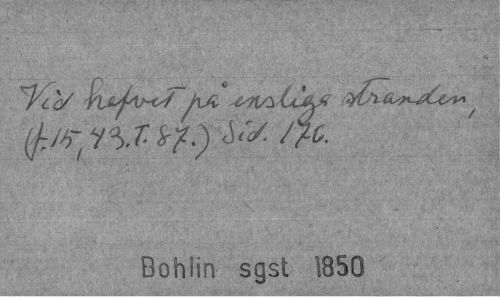 Vid hafvet på ensliga stranden,
(f.15, 43. T. 87.) Sid. 170.
Bohlin sgst 1850